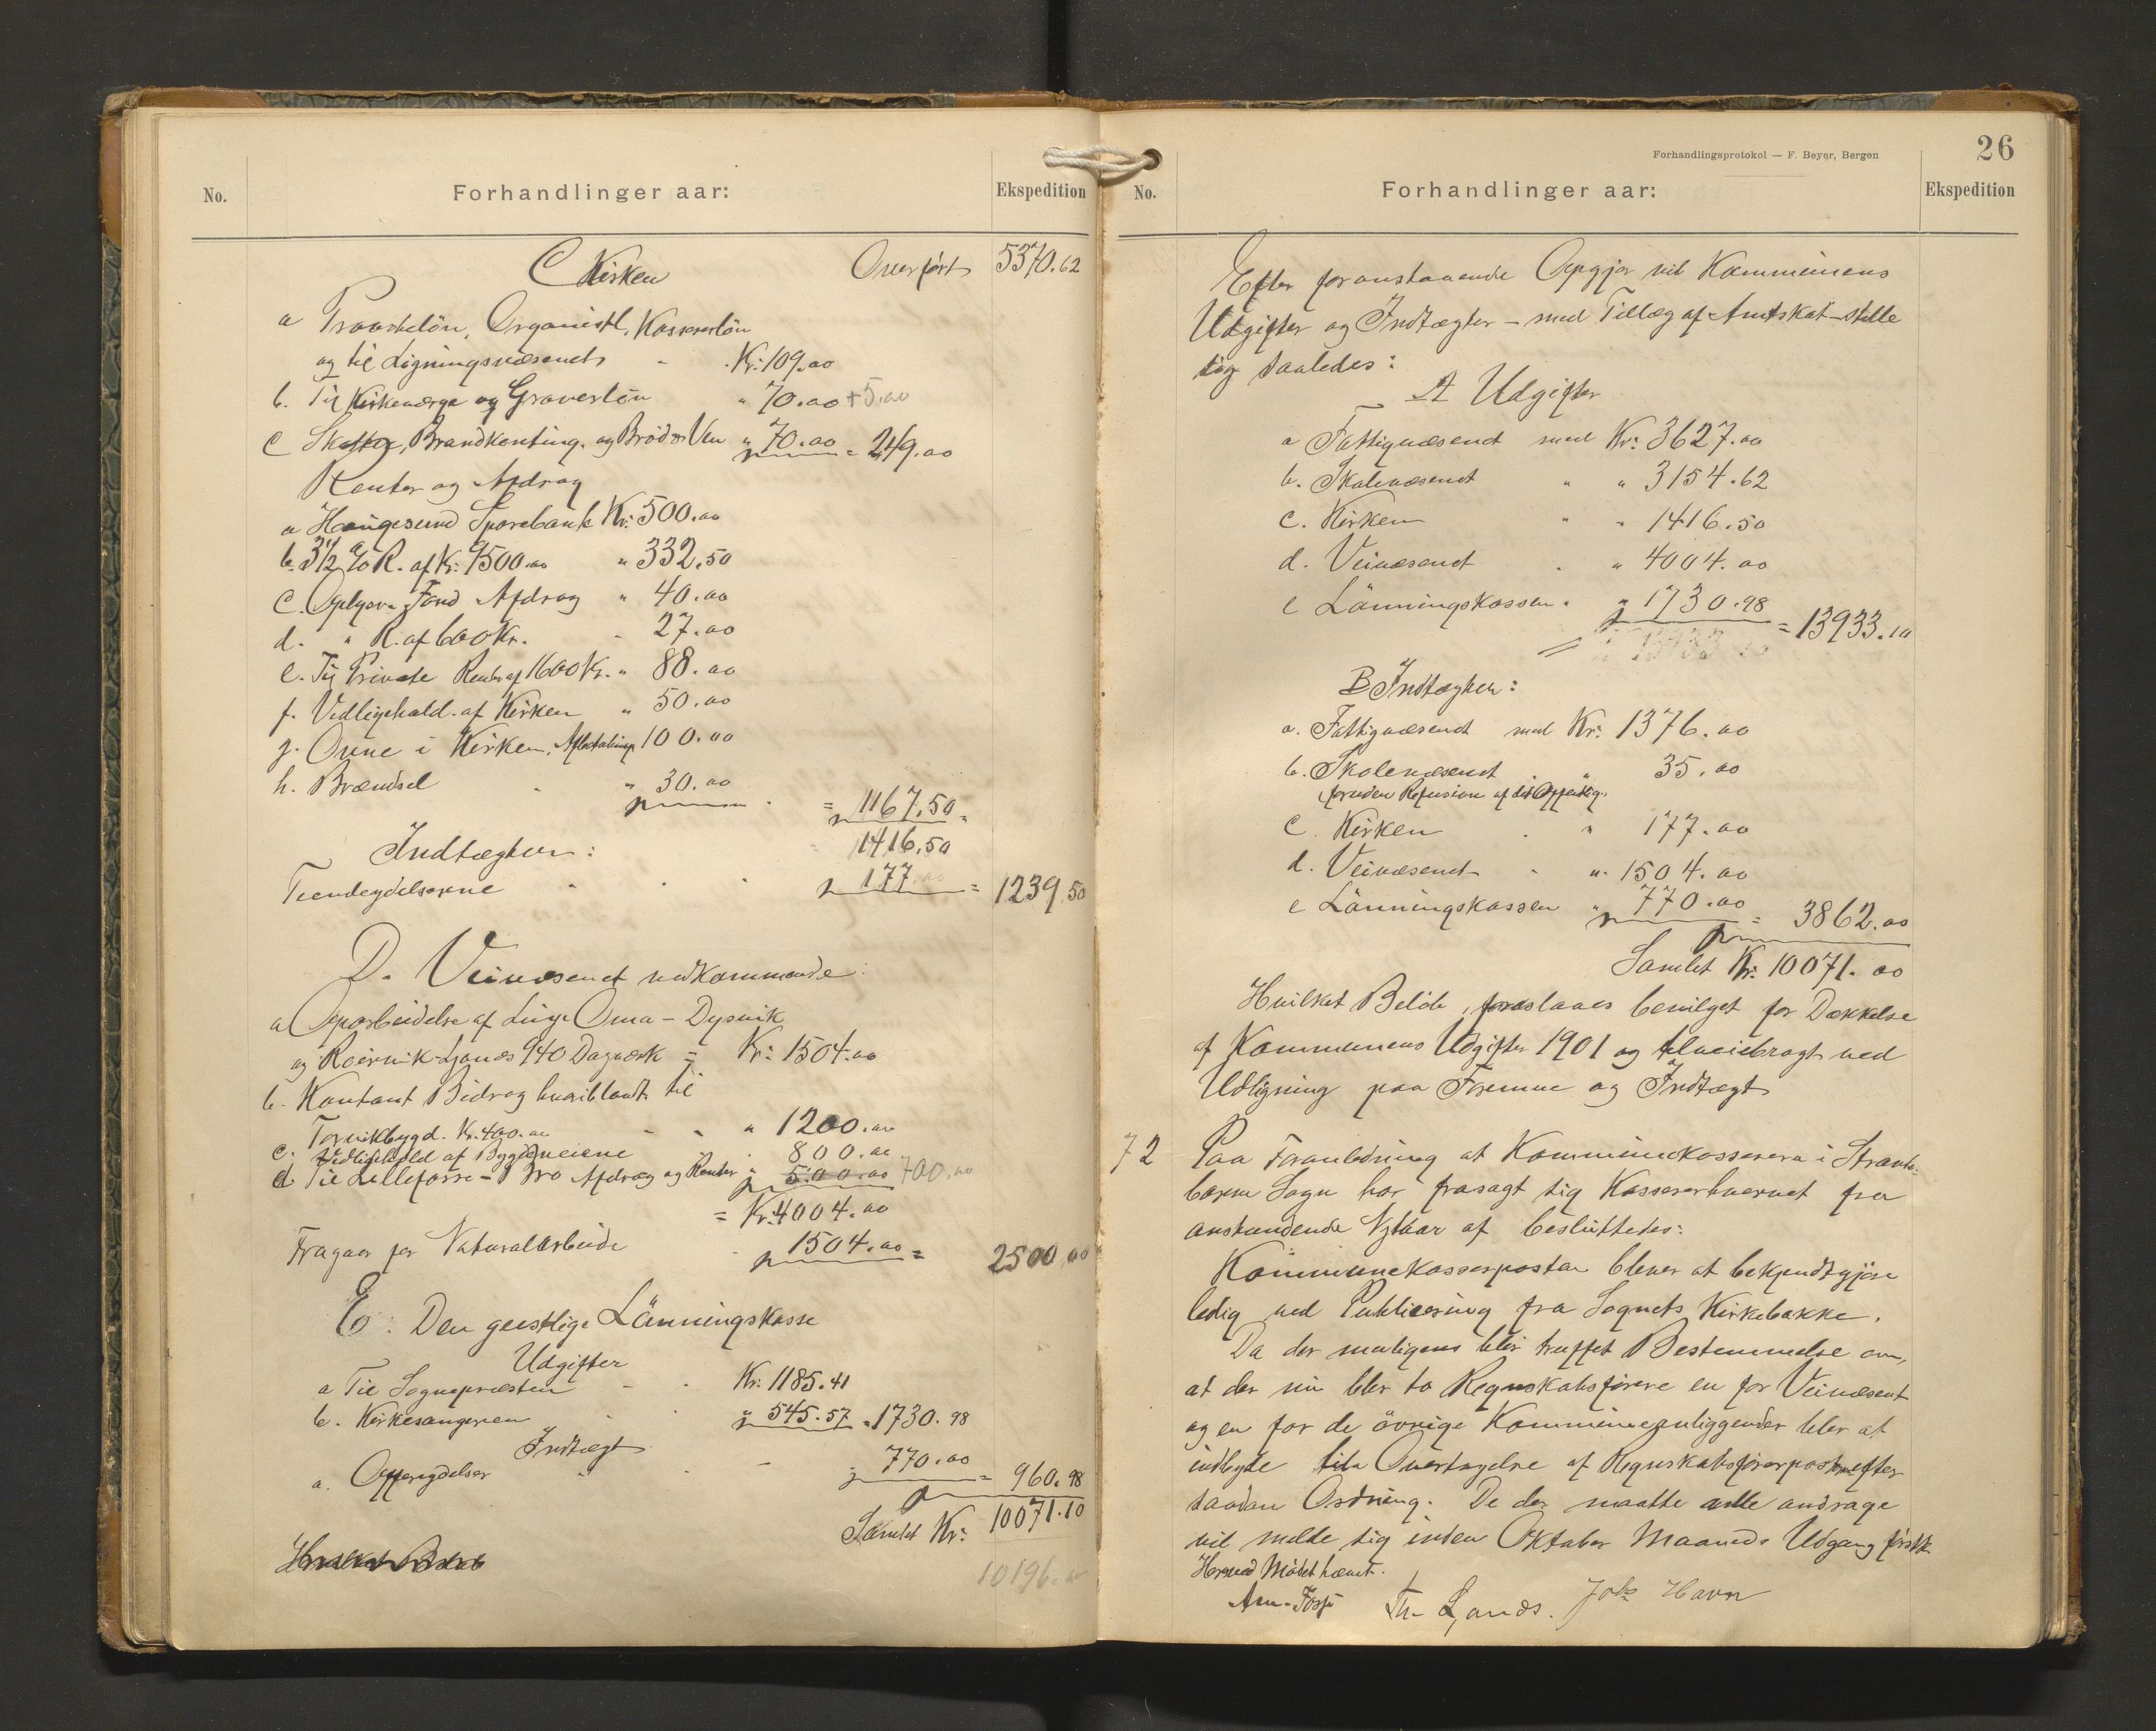 No.
Forhandlinger aar:
Ekspedition
C Kirken Overført 5370.62
a Provsteløn, Organistl, Kassererløn
og til Ligningsvæsenet Kr: 109.00
b. Til Kirkeværge og Graverløn " 70.00 +5.00
c Skatter, Brandkonting. og Brød & Vin " 70.00 = 249.00
Renter og Afdrag
a Haugesund Sparebank Kr: 500.00
b. 3 1/2 % R. af Kr: 9500.00 " 332.50
c. Oplysn. Fond Afdrag " 40.00
d. " R. af 600 Kr. " 27.00
e. Til Private Renter af 1600 Kr. " 88.00
f. Vedligehold af Kirken " 50.00
g. Ovne i Kirken, Afbetaling 100.00
h. Brændsel " 30.00
= 1167.50 =
1416.50
Indtægter:
Tiendeydelserne 177.00 = 1239.50
D. Veivæsenet vedkommende:
a Oparbeidelse af Linje Oma – Dysvik
og Røirvik-Ljones 940 Dagværk = Kr: 1504.00
b. Kontant Bidrag hvoriblandt til
Torvikbygd. Kr. 400.00 " 1200.00
c. Vedligehold af Bygdeveiene 800.00
d. Til Lillefosse – Bro Afdrag og Renter " 500.00 700.00
= Kr: 4004.00
Fragaar for Naturalarbeide 1504.00 = 2500.00
E. Den geistlige Lønningskasse
Udgifter
a Til Sognepræsten Kr: 1185.41
b. Kirkesangeren " 545.57 = 1730.98
Indtægt
a. Offerydelser 770.00 = 960.98
Samlet Kr: 10071.10
Hvilket Beløb
10196.
Forhandlingsprotokol — F. Beyer, Bergen
26
No.
Forhandlinger aar:
Ekspedition
Efter foranstaaende Opgjør vil Kommunens
Udgifter og Indtægter – med Tillæg af Amtskat – stille
sig saaledes:
A Udgifter
a Fattigvæsenet med Kr: 3627.00
b. Skolevæsenet " " 3154.62
c. Kirken " " 1416.50
d. Veivæsenet " 4004.00
e Lønningskassen " " 1730.98 = 13933.10
B Indtægter:
a. Fattigvæsenet med Kr: 1376.00
b. Skolevæsenet " 35.00
foruden Refusion af det Offentlig.
c. Kirken " 177.00
d. Veivæsenet " 1504.00
e Lønningskassen " 770.00 = 3862.00
Samlet Kr: 10071.00
Hvilket Beløb foreslaaes bevilget for Dækkelse
af Kommunens Udgifter 1901 og tilveiebragt ved
Udligning paa Formue og Indtægt
72 Paa Foranledning at Kommunekassereren i Strande-
barm Sogn har frasagt sig Kassererhvervet fra
anstundende Nytaar af besluttedes:
Kommunekasserposten bliver at bekjendtgjøre
ledig ved Publicering fra Sognets Kirkebakke.
Da der muligens blir truffet Bestemmelse om,
at der nu blir to Regnskabsførere en for Veivæsenet
og en for de øvrige Kommuneanliggender blir at
indbyde til Overtagelse af Regnskabsførerposterne efter
saadan Ordning. De der maatte ville andrage
vil melde sig inden Oktober Maaneds Udgang førstk.
Hermed Mødet hævet.
Th. Ljones. Johs Havn